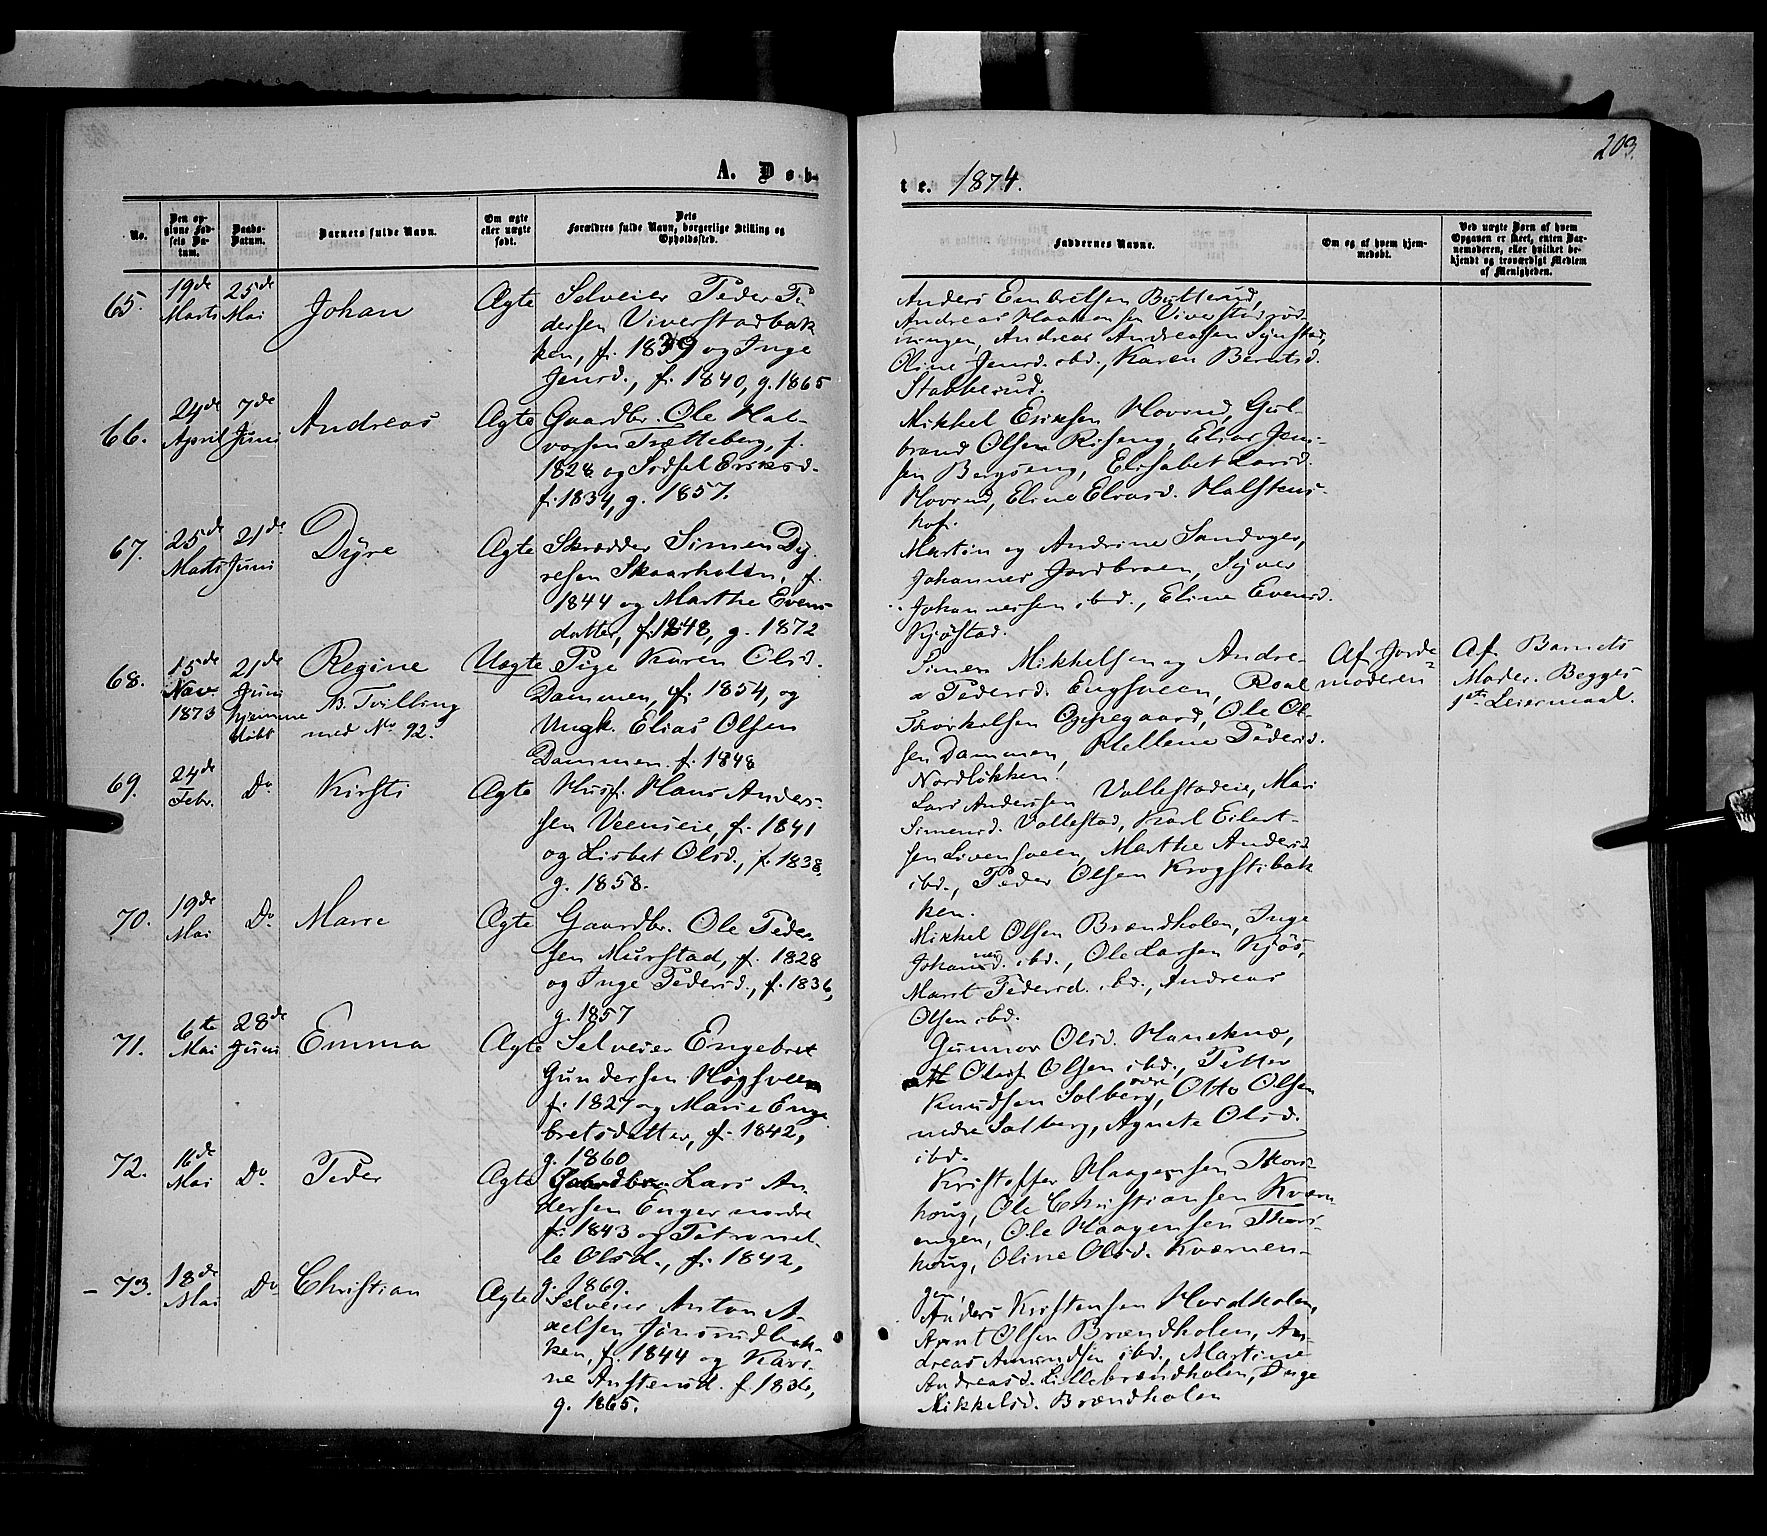 203.
A. Døb-
te. 1874.
No.
Den op-
givne Fød-
sels Da-
tum.
Daabs-
Datum.
Barnets fulde Navn.
Om ægte
eller uægte
født.
Dets
Forældres fulde Navn, borgerlige Stilling og
Opholdssted.
Faddernes Navne.
Om og af hvem hjem-
medøbt.
Ved uægte Børn af hvem
Opgaven er skeet, enten Bar-
nemoderen, eller hvilket be-
kjendt og troværdigt Medlem
af Menigheden.
65.
19de
Marts
25de
Mai
Johan
Ægte
Selveier Peder Pe-
dersen Viverstadbak-
ken, f. 1839 og Inge
Jensd., f. 1840, g. 1865
Anders Embretsen Botterud,
Andreas Haakensen Viverstadrød-
ningen, Andreas Andreassen Synstad,
Oline Jensd. ibd., Karen Berntsd.
Stabberud.
66.
24de
April
7de
Juni
Andreas
Ægte
Gaardbr. Ole Hal-
vorsen Trætteberg, f.
1828 og Sidsel Eriksd.
f. 1834, g. 1857.
Mikkel Eriksen Hovrud, Gul-
brand Olsen Riseng, Elias Jen-
sen Bergseng, Elisabet Larsd.
Hovrud, Eline Eliasd. Halstens-
hof.
67.
25de
Marts
21de
Juni
Dyre
Ægte
Skrædder Simen Dy-
resen Skaarholen, f.
1844 og Marthe Evens-
datter, f. 1848, g. 1872
Martin og Andrine Sandvoger,
Johannes Jordbroen, Syver
Johannessen ibd., Eline Evensd.
Kjøstad.
68.
15de
Nov.
1873
21de
Juni
hjemme
døbt
Regine
NB. Tvilling
med No 92.
Uægte
Pige Karen Olsd.
Dammen, f. 1854, og
Ungk. Elias Olsen
Dammen. f. 1848
Simen Mikkelsen og Andre-
a Pedersd. Engsveen, Roal
Thorkelsen Oppegaard, Ole Ol-
sen Dammen, Hellene Pedersd.
Nordløkken.
Af Jorde-
moderen
Af Barnets
Moder. Begges
1ste Leiermaal.
69.
24de
Febr.
Do
Kirsti
Ægte
Husf. Hans Anders-
sen Veenseie, f. 1841
og Lisbet Olsd., f. 1838,
g. 1858.
Lars Anderssen Vollestadeie, Mari
Simensd. Vollestad, Karl Eilert-
sen Livensveen, Marthe Andersd.
ibd., Peder Olsen Krogstibak-
ken.
70.
19de
Mai
Do
Marie
Ægte
Gaardbr. Ole Peder-
sen Murstad, f. 1828
og Inge Pedersd., f. 1836,
g. 1857
Mikkel Olsen Brændholen, Inge
Johannesd. ibd., Ole Larsen Kjøs,
Marit Pedersd. ibd., Andreas
Olsen ibd.
71.
6te
Mai
28de
Juni
Emma
Ægte
Selveier Engebret
Gundersen Høgsveen
f. 1827 og Marie Enge-
bretsdatter, f. 1842,
g. 1860
Gunnor Olsd. Haneknæ,
Oluf Olsen ibd., Petter
Knudsen Solberg øvre, Otto Olsen
nedre Solberg, Agnete Olsd.
ibd.
72.
16de
Mai
Do
Peder
Ægte
Gaardbr. Lars An-
dersen Enger nordre
f. 1843 og Petronel-
le Olsd., f. 1842,
g. 1869.
Kristoffer Haagensen Thors-
houg, Ole Christiansen Kværn-
engen, Ole Haagensen Thors-
houg, Oline Olsd. Kværnen-
gen.
73.
18de
Mai
Do
Christian
Ægte
Selveier Anton A-
xelsen Jønsrudbak-
ken, f. 1844 og Kari-
ne Anstensd. f. 1836,
g. 1865.
Anders Kristensen Hvidholen,
Arnt Olsen Brændholen, An-
dreas Amundsen ibd., Martine
Andreasd. Lillebrændholen, Inge
Mikkelsd. Brændholen